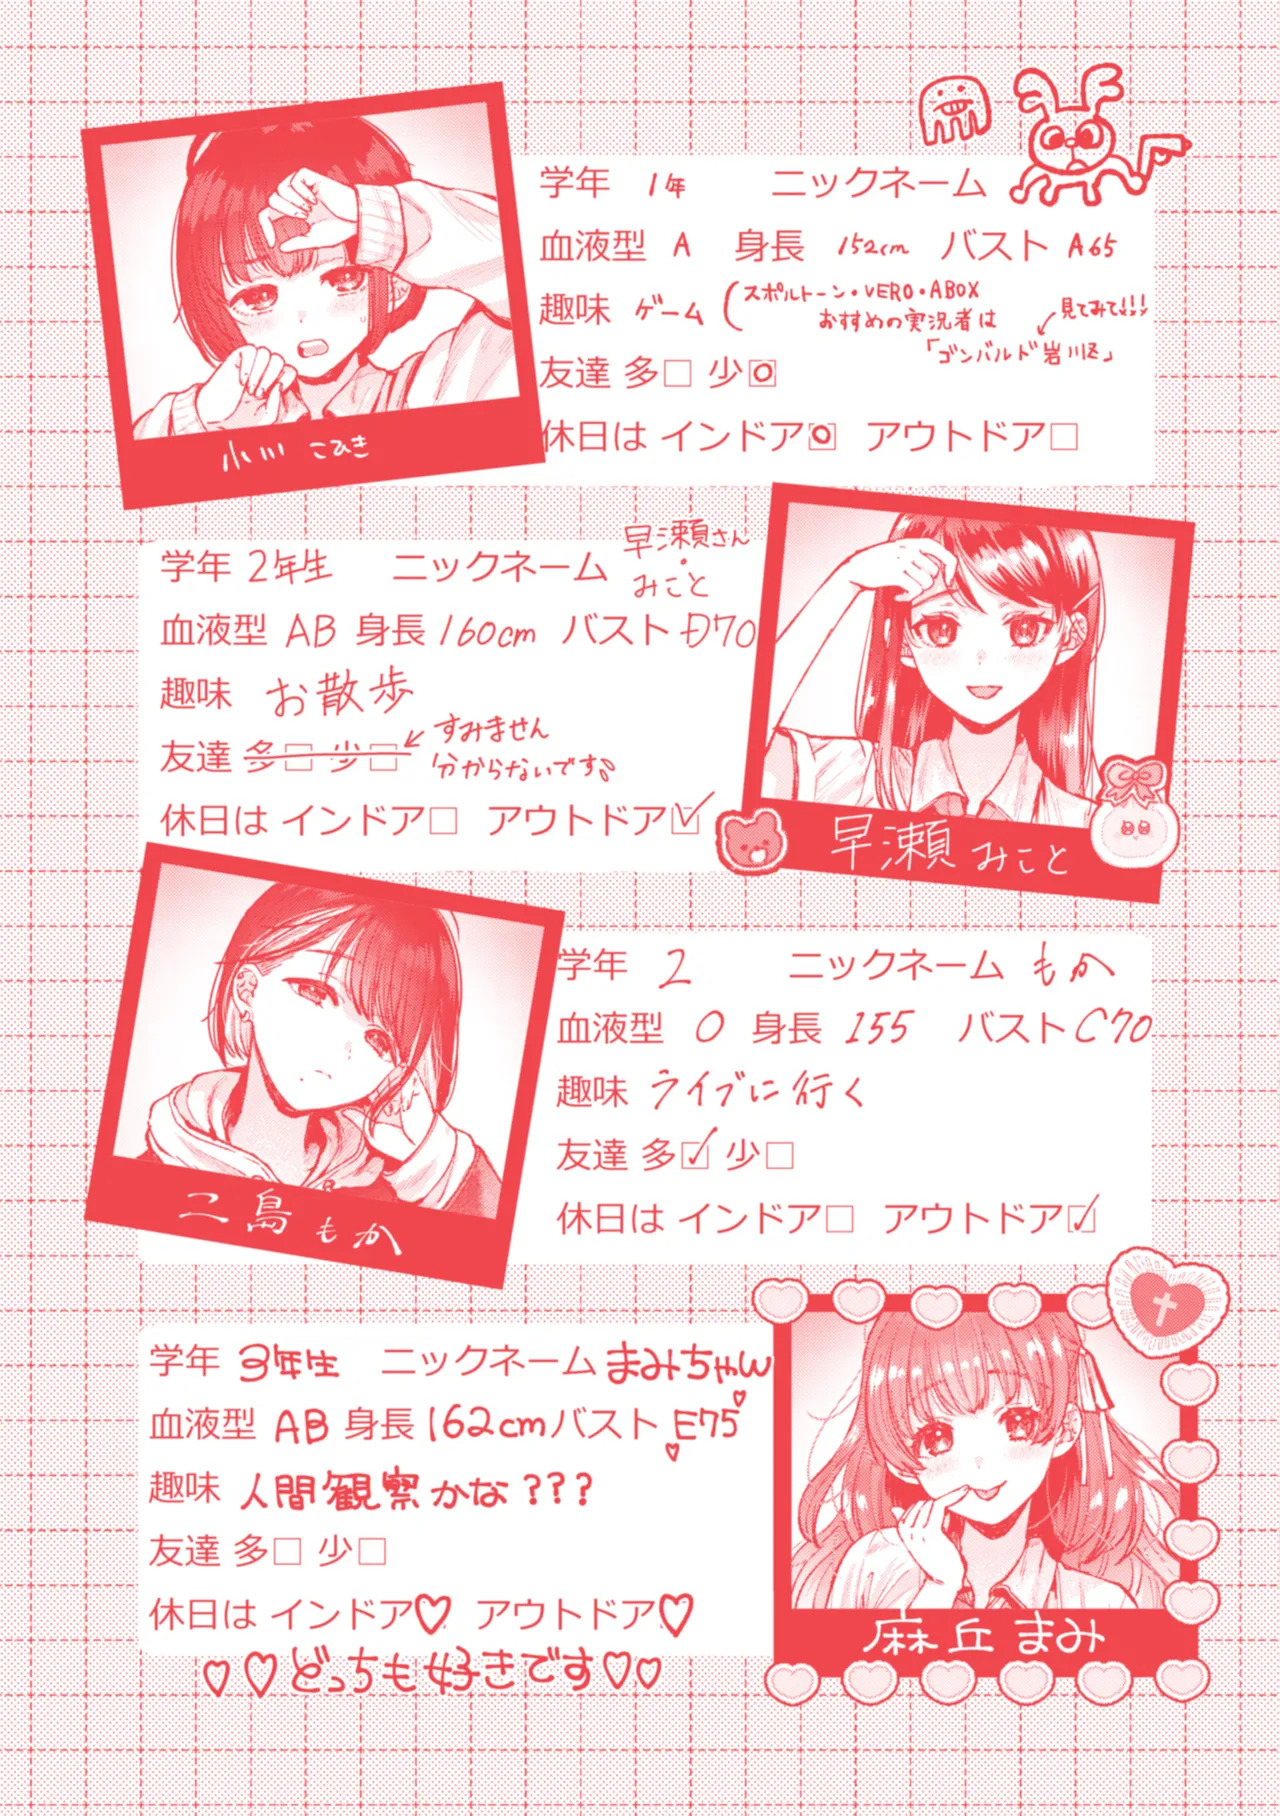 学年 1年 ニックネーム
血液型 A 身長 152cm バスト A65
趣味 ゲーム (スポルトーン・VERO・ABOX
おすすめの実況者は
「ゴンバルド岩川区」
見てみて!!!
友達 多□ 少□
休日は インドア□ アウトドア□
小川 こひき
学年 2年生 ニックネーム 早瀬さん・みこと
血液型 AB 身長 160cm バスト D70
趣味 お散歩
友達 多□ 少□ ← すみません
分からないです
休日は インドア□ アウトドア☑
早瀬 みこと
学年 2 ニックネーム もか
血液型 O 身長 155 バスト C70
趣味 ライブに行く
友達 多☑ 少□
休日は インドア□ アウトドア☑
二鳥 もか
学年 3年生 ニックネーム まみちゃん
血液型 AB 身長 162cm バスト E75
趣味 人間観察かな???
友達 多□ 少□
休日は インドア♡ アウトドア♡
♡♡どっちも好きです♡♡
麻丘 まみ